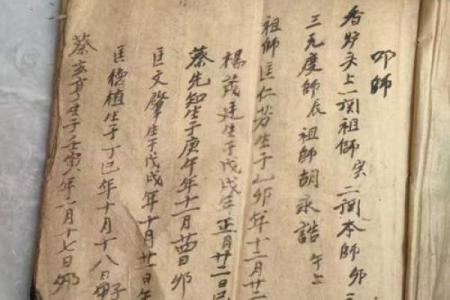 叩師
香炉头上一問祖師寅二問本師卯三
三元度師辰 祖師胡永誥 午上
祖師匡仁芳生于乙卯年十二月廿二
楊茂廷生于戊戌年正月廿二日巳
蔡先知生于庚午年十一月廿四日卯
匡文肇生于戊戌年十月廿一日午
匡德植生于丁巳年十月十八日卯
蔡亥亨生于壬寅年二月十七日卯